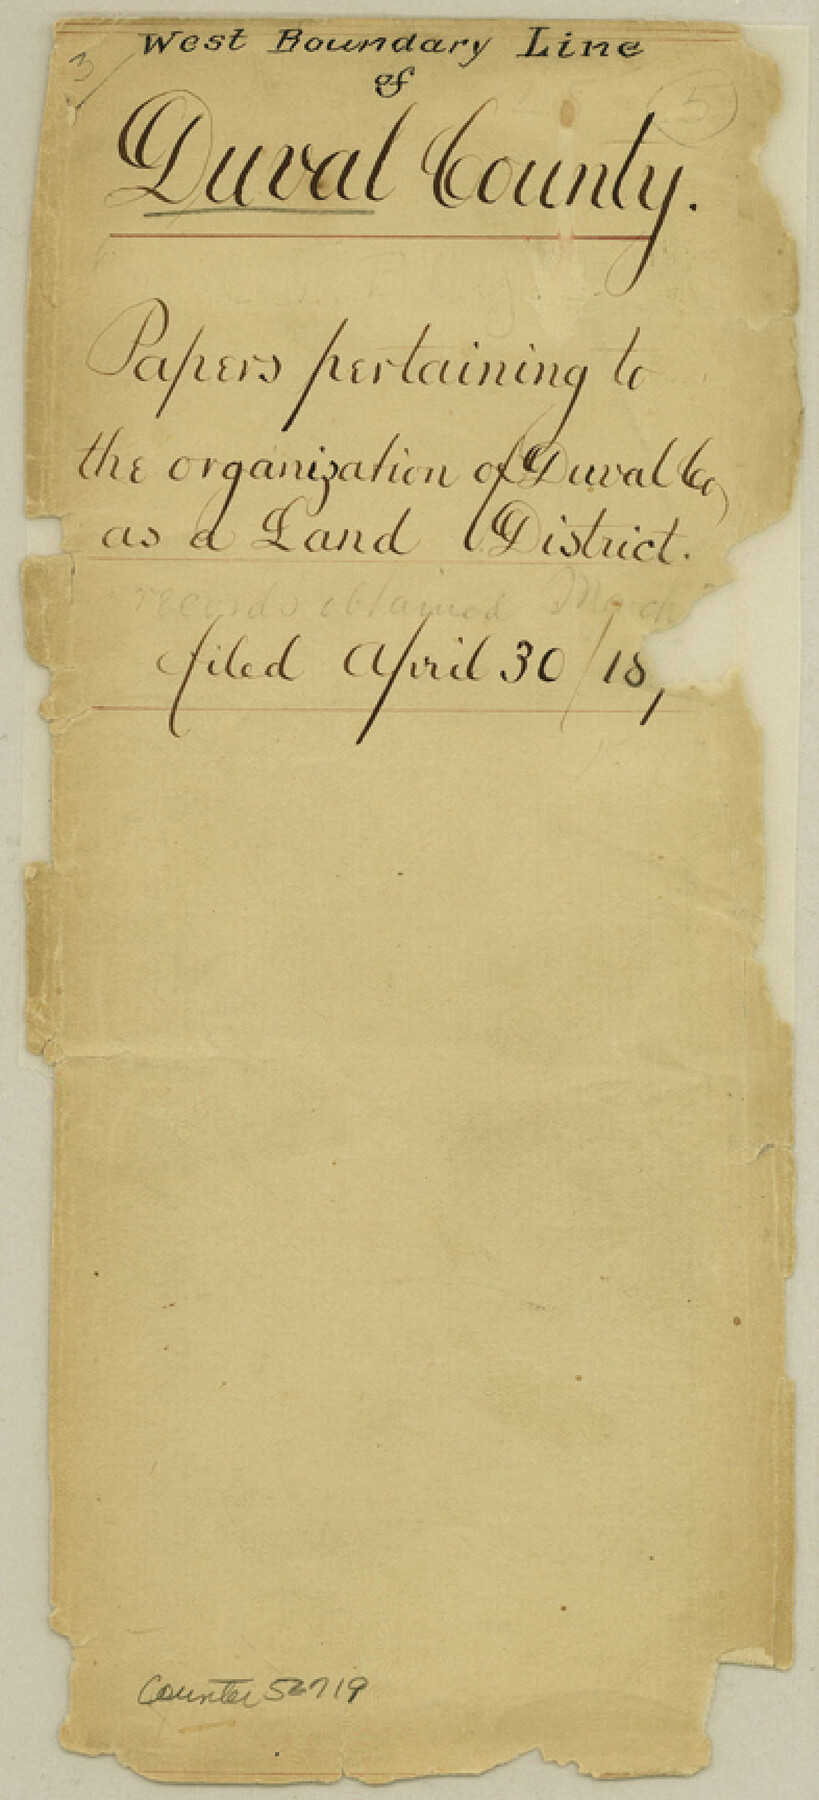 West Boundary Line
of
3
5
Duval County.
Papers pertaining to
the organization of Duval Co
as a Land District.
records obtained March
filed April 30/18
Counter 52719